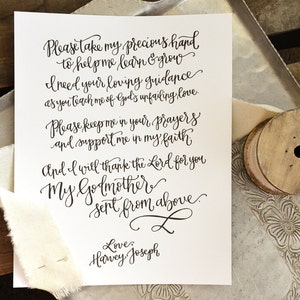 Please take my precious hand
to help me learn & grow
I need your loving guidance
as you teach me of God's unfailing love.
Please keep me in your prayers
and support me in my faith
And I will thank the Lord for you
My Godmother,
sent from above.
Love,
Harvey Joseph